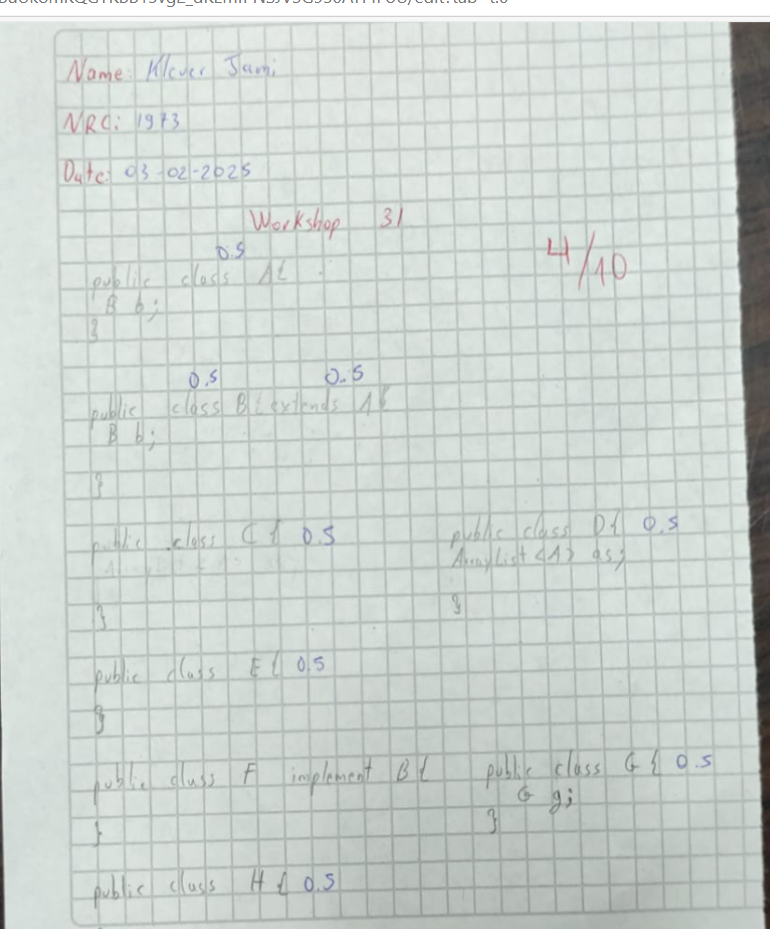 Name: Klever Jami
NRC: 1973
Date: 03-02-2025
Workshop 31
4/10
0.5
public class A{
B b;
}
0.5 0.5
public class B{ extends A{
B b;
}
public class C{ 0.5
}
public class D{ 0.5
ArrayList <A> as;
}
public class E{ 0.5
}
public class F implement B{
}
public class G{ 0.5
G g;
}
public class H{ 0.5